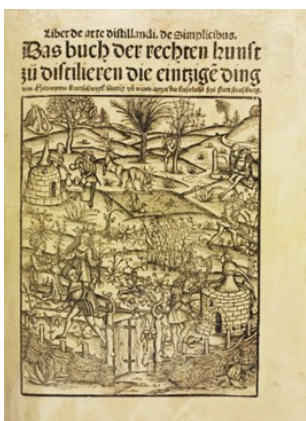 Liber de arte distillandi. de Simplicibus.
Das buch der rechten kunst
zů distilieren die eintzige ding
von Hieronymo